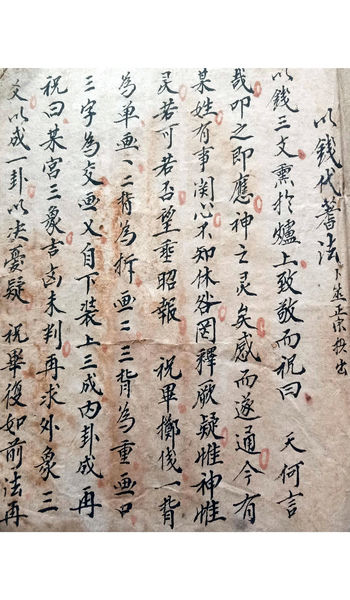 以錢代蓍法 卜筮正宗抄出
以錢三文熏於爐上致敬而祝曰 天何言
哉叩之即應神之灵矣感而遂通今有
某姓有事関心不知休咎罔釋厥疑惟神惟
灵若可若否望垂昭報 祝畢擲俴一背
為单画一二背為拆画二三背為重画口
三字為交画乂自下装上三成内卦成再
祝曰某宮三象吉凶未判再求外象三
爻以成一卦以决憂疑 祝畢復如前法再